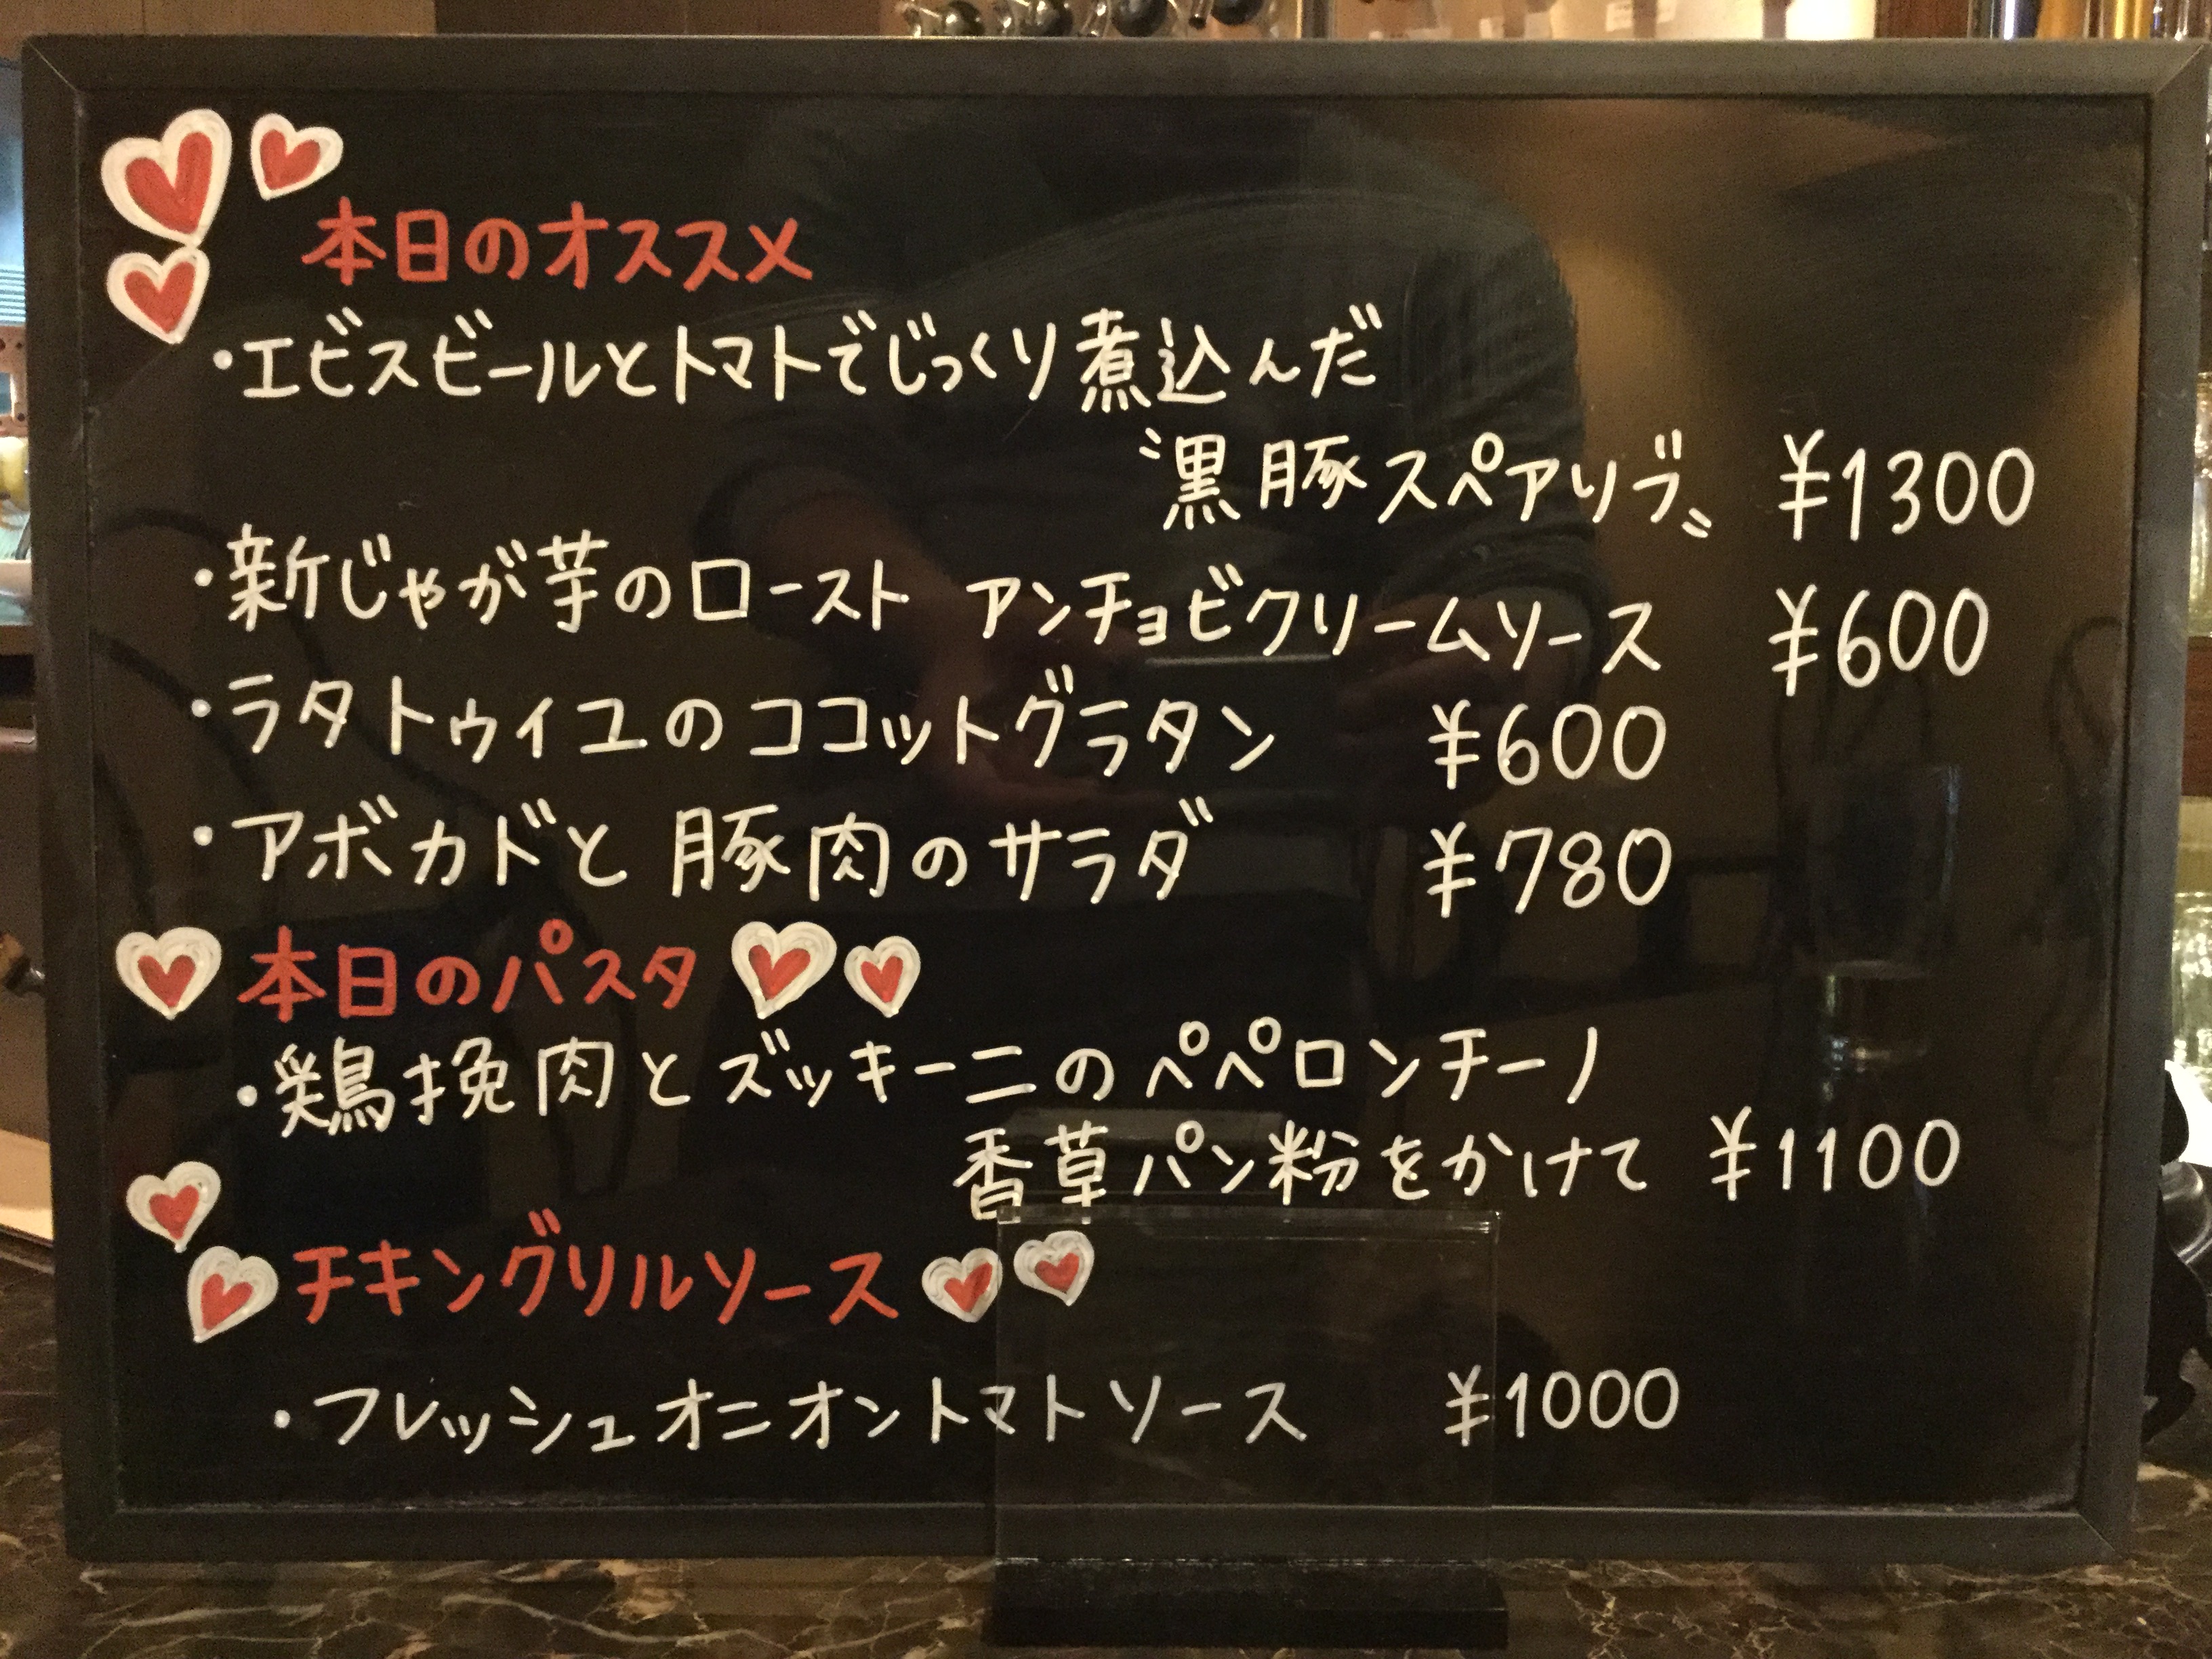 本日のオススメ
・エビスビールとトマトでじっくり煮込んだ
〝黒豚スペアリブ〟 ¥1300
・新じゃが芋のロースト アンチョビクリームソース ¥600
・ラタトゥイユのココットグラタン ¥600
・アボカドと豚肉のサラダ ¥780
本日のパスタ
・鶏挽肉とズッキーニのペペロンチーノ
香草パン粉をかけて ¥1100
チキングリルソース
・フレッシュオニオントマトソース ¥1000